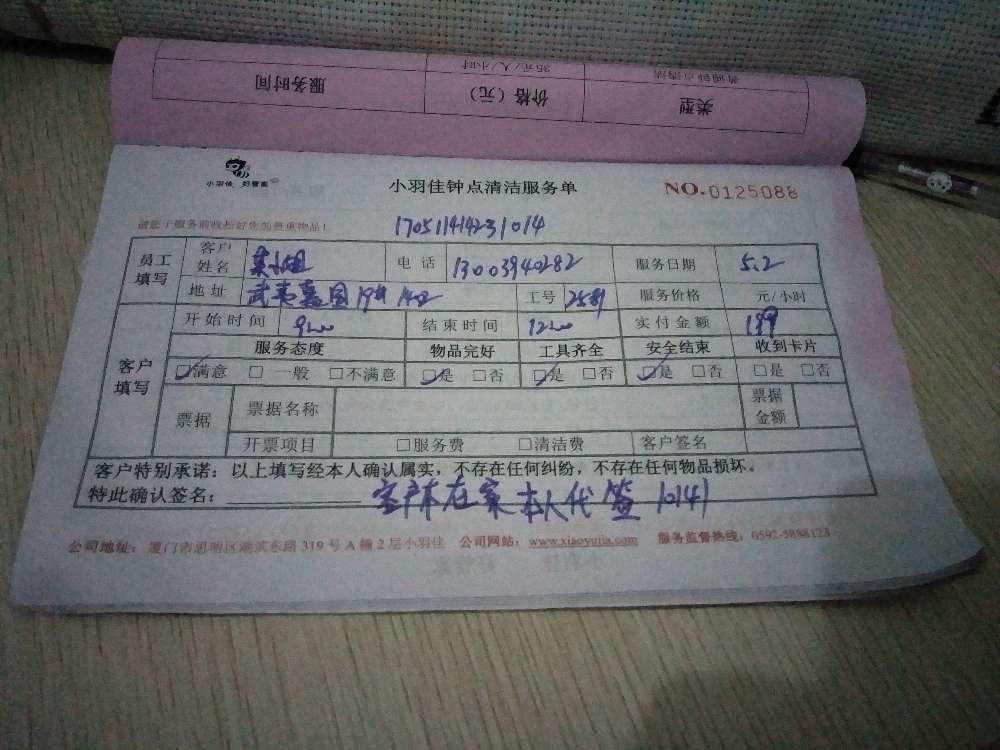 普通钟点清洁 35元/人/小时
类型 价格（元） 服务时间
小羽佳 好管家
小羽佳钟点清洁服务单
NO.0125088
请您于服务前收检好您的贵重物品！
170511414231014
员工填写 客户姓名 电话 13003940282 服务日期 5.2
地址 武夷嘉园19# 1402 工号 2581 服务价格 元/小时
客户填写 开始时间 9:00 结束时间 12:00 实付金额 199
服务态度 物品完好 工具齐全 安全结束 收到卡片
☑满意 □一般 □不满意 ☑是 □否 ☑是 □否 ☑是 □否 □是 □否
票据 票据名称 票据金额
开票项目 □服务费 □清洁费 客户签名
客户特别承诺：以上填写经本人确认属实，不存在任何纠纷，不存在任何物品损坏。
特此确认签名： 客户不在家 本人代签 10141
公司地址：厦门市思明区湖滨东路319号A幢2层小羽佳 公司网站：www.xiaoyujia.com 服务监督热线：0592-5888123